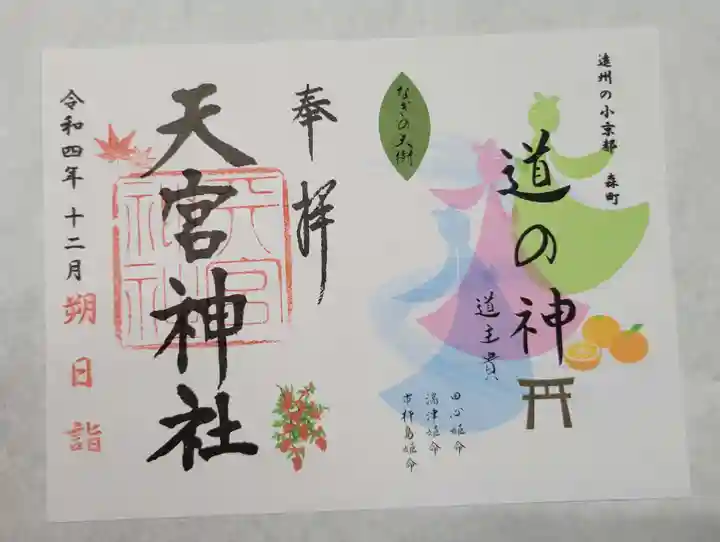 遠州の小京都　森町
道の神
道主貴
田心姫命
湍津姫命
市杵島姫命
なぎの大樹
奉拝
天宮神社
天宮
神社
令和四年十二月
朔日詣